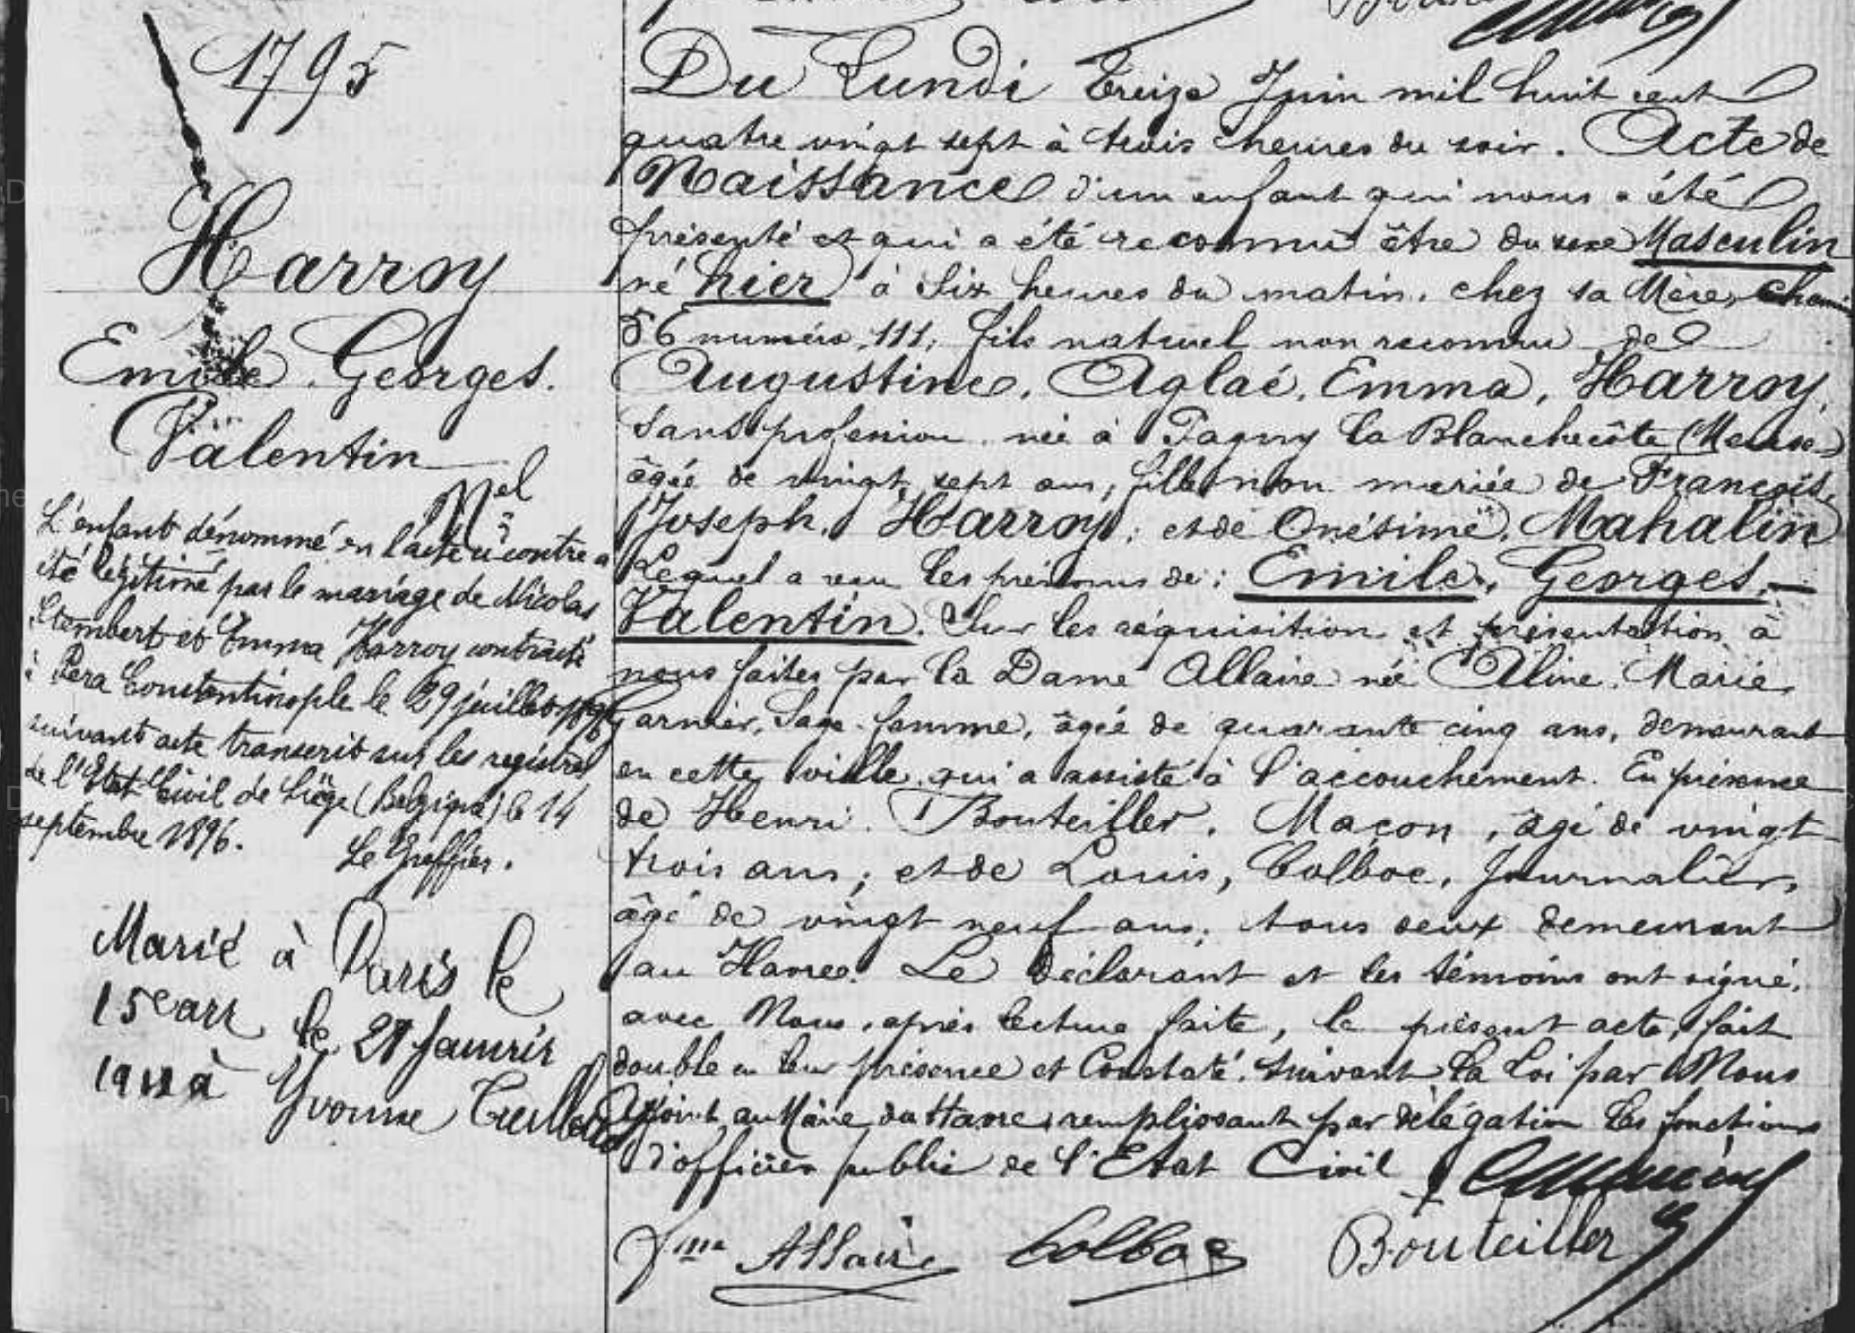 1795
Harroy
Emile. Georges.
Valentin
Nel
L'enfant dénommé en l'acte ci contre a
été légitimé par le mariage de Nicolas
Stembert et Emma Harroy contracté
à Pera Constantinople le 29 juillet
suivant acte transcrit sur les registres
de l'Etat-Civil de Liège (Belgique) le 14
septembre 1896.
Le Greffier.
Marié à Paris le
15e arr le 27 Janvier
1912 à Yvonne
Du Lundi Treize Juin mil huit cent
quatre vingt sept à trois heures du soir. Acte de
Naissance d'un enfant qui nous a été
présenté et qui a été reconnu être du sexe Masculin
né hier à Six heures du matin, chez sa Mère,
56 numéro 111, fils naturel non reconnu de
Augustine, Aglaé, Emma, Harroy,
Sans profession, née à Pagny la Blanchecôte (Meuse)
âgée de vingt sept ans, fille non mariée de François
Joseph, Harroy; et de Onésime, Mahalin
Lequel a reçu les prénoms de: Emile, Georges,
Valentin. Sur les réquisition et présentation à
nous faites par la Dame Allaire née Aline, Marie,
Garnier, Sage-femme, âgée de quarante cinq ans, demeurant
en cette ville, qui a assisté à l'accouchement. En présence
de Henri. Bouteiller. Maçon, âgé de vingt
trois ans; et de Louis, Colboc, Journalier,
âgé de vingt neuf ans; tous deux demeurant
au Havre. Le déclarant et les témoins ont signé,
avec Nous, après lecture faite, le présent acte, fait
double en leur présence et Constaté, suivant la Loi par Nous
Adjoint au Maire du Havre, remplissant par délégation les fonctions
d'officier public de l'Etat Civil
fme Allaire Colboc Bouteiller